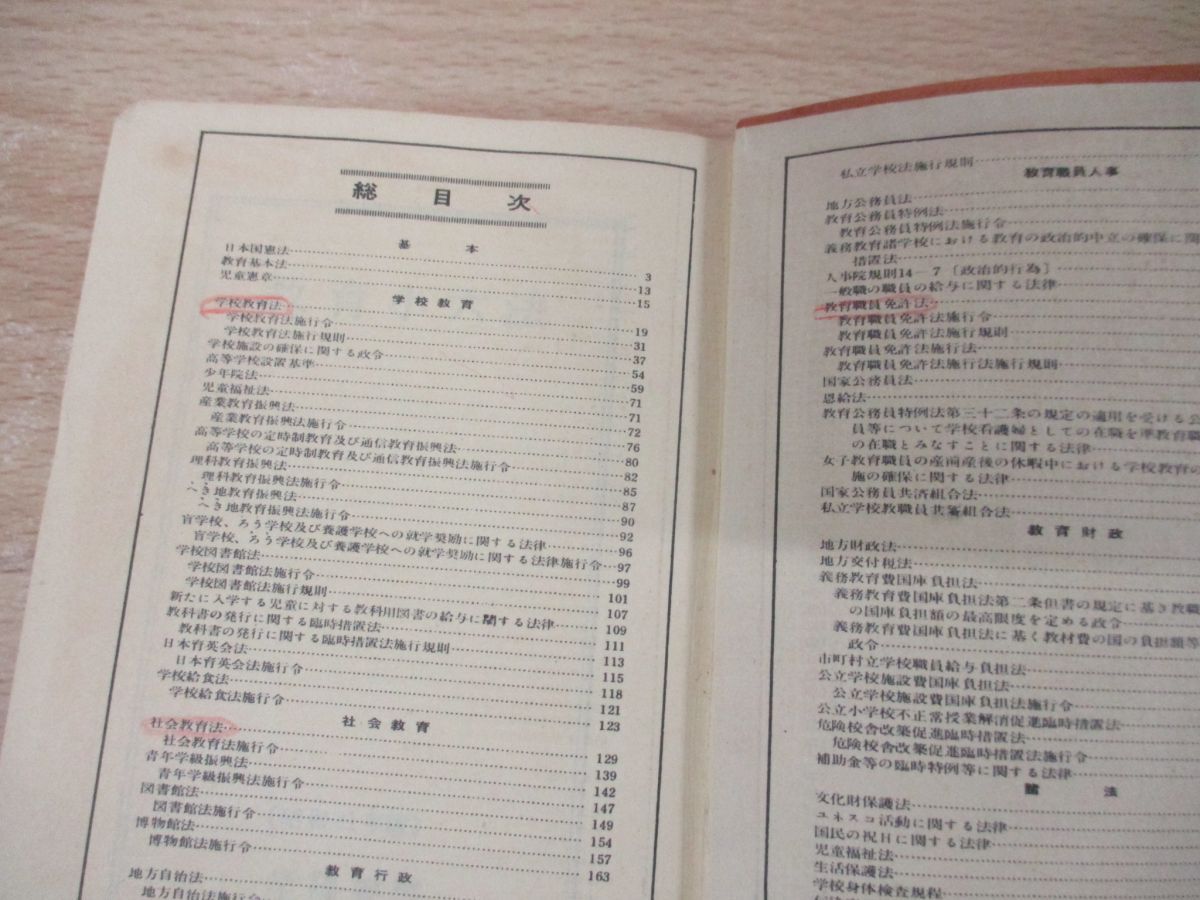 総目次
基本
日本国憲法……3
教育基本法……13
児童憲章……15
学校教育
学校教育法……19
学校教育法施行令……31
学校教育法施行規則……37
学校施設の確保に関する政令……54
高等学校設置基準……59
少年院法……71
児童福祉法……71
産業教育振興法……72
産業教育振興法施行令……76
高等学校の定時制教育及び通信教育振興法……80
高等学校の定時制教育及び通信教育振興法施行令……82
理科教育振興法……85
理科教育振興法施行令……87
へき地教育振興法……90
へき地教育振興法施行令……92
盲学校、ろう学校及び養護学校への就学奨励に関する法律……96
盲学校、ろう学校及び養護学校への就学奨励に関する法律施行令…97
学校図書館法……99
学校図書館法施行令……101
学校図書館法施行規則……107
新たに入学する児童に対する教科用図書の給与に関する法律……109
教科書の発行に関する臨時措置法……111
教科書の発行に関する臨時措置法施行規則……113
日本育英会法……115
日本育英会法施行令……118
学校給食法……121
学校給食法施行令……123
社会教育
社会教育法……129
社会教育法施行令……139
青年学級振興法……142
青年学級振興法施行令……147
図書館法……149
図書館法施行令……154
博物館法……157
博物館法施行令……163
教育行政
地方自治法……
地方自治法施行令……
私立学校法施行規則……
教育職員人事
地方公務員法……
教育公務員特例法……
教育公務員特例法施行令……
義務教育諸学校における教育の政治的中立の確保に関
措置法……
人事院規則14－7〔政治的行為〕……
一般職の職員の給与に関する法律……
教育職員免許法……
教育職員免許法施行令……
教育職員免許法施行規則……
教育職員免許法施行法……
教育職員免許法施行法施行規則……
国家公務員法……
恩給法……
教育公務員特例法第三十二条の規定の適用を受ける公
員等について学校看護婦としての在職を準教育職
の在職とみなすことに関する法律……
女子教育職員の産前産後の休暇中における学校教育の
施の確保に関する法律……
国家公務員共済組合法……
私立学校教職員共済組合法……
教育財政
地方財政法……
地方交付税法……
義務教育費国庫負担法……
義務教育費国庫負担法第二条但書の規定に基き教職
の国庫負担額の最高限度を定める政令……
義務教育費国庫負担法に基く教材費の国の負担額等
政令……
市町村立学校職員給与負担法……
公立学校施設費国庫負担法……
公立学校施設費国庫負担法施行令……
公立小学校不正常授業解消促進臨時措置法……
危険校舎改築促進臨時措置法……
危険校舎改築促進臨時措置法施行令……
補助金等の臨時特例等に関する法律……
法
文化財保護法……
ユネスコ活動に関する法律……
国民の祝日に関する法律……
児童福祉法……
生活保護法……
学校身体検査規程……